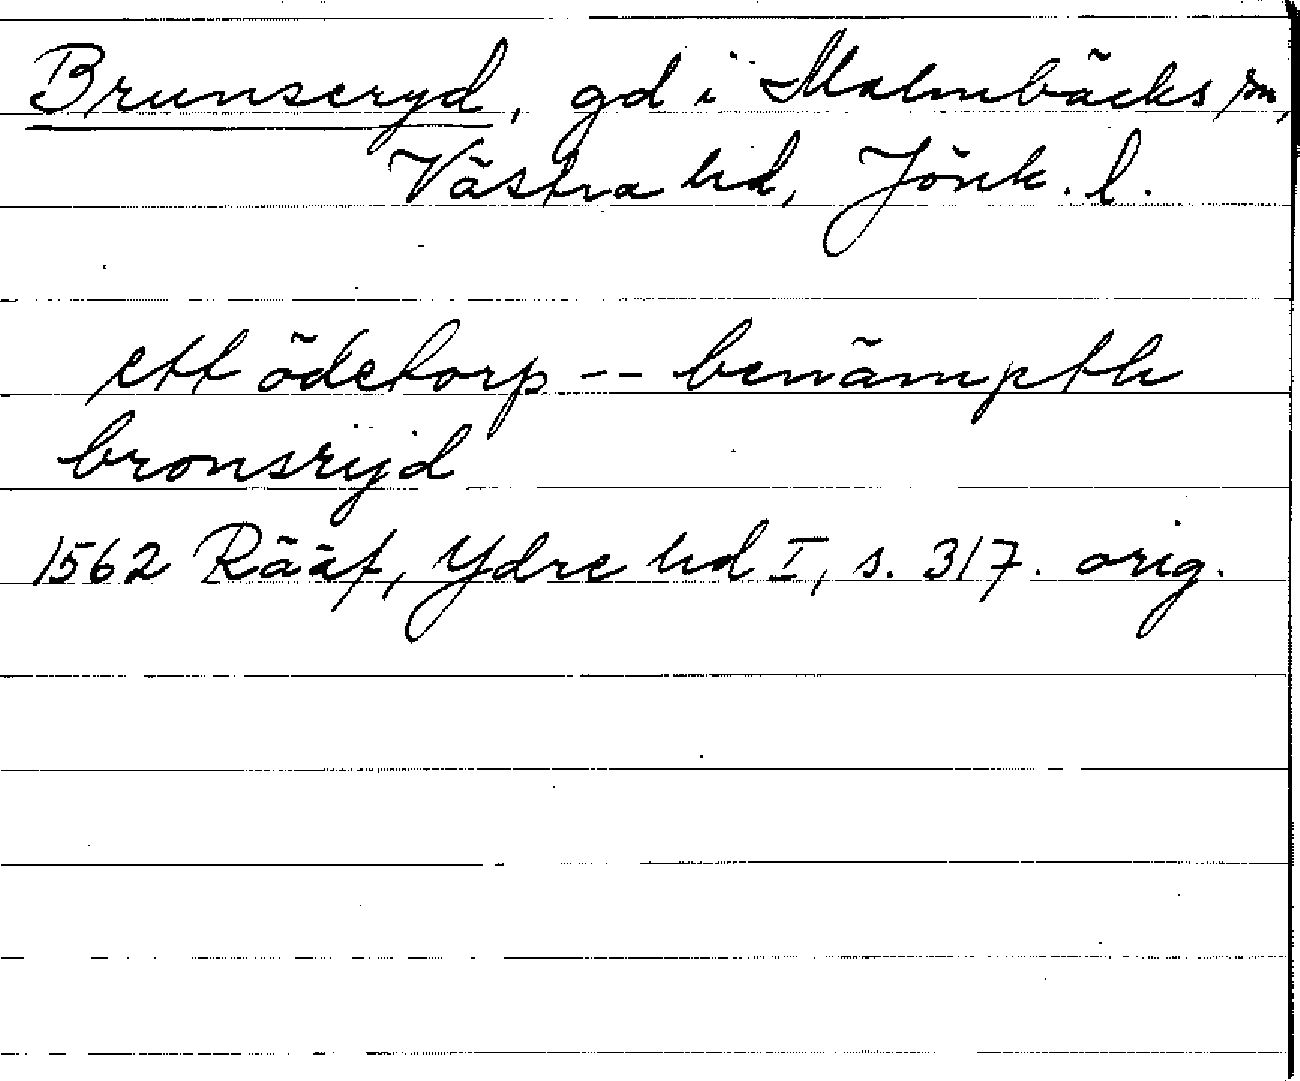 Brunseryd, gd i Malmbäcks sn,
Västra hd, Jönk. l.
ett ödetorp -- benämpth
bronsrijd
1562 Rääf, Ydre hd I, s. 317. orig.